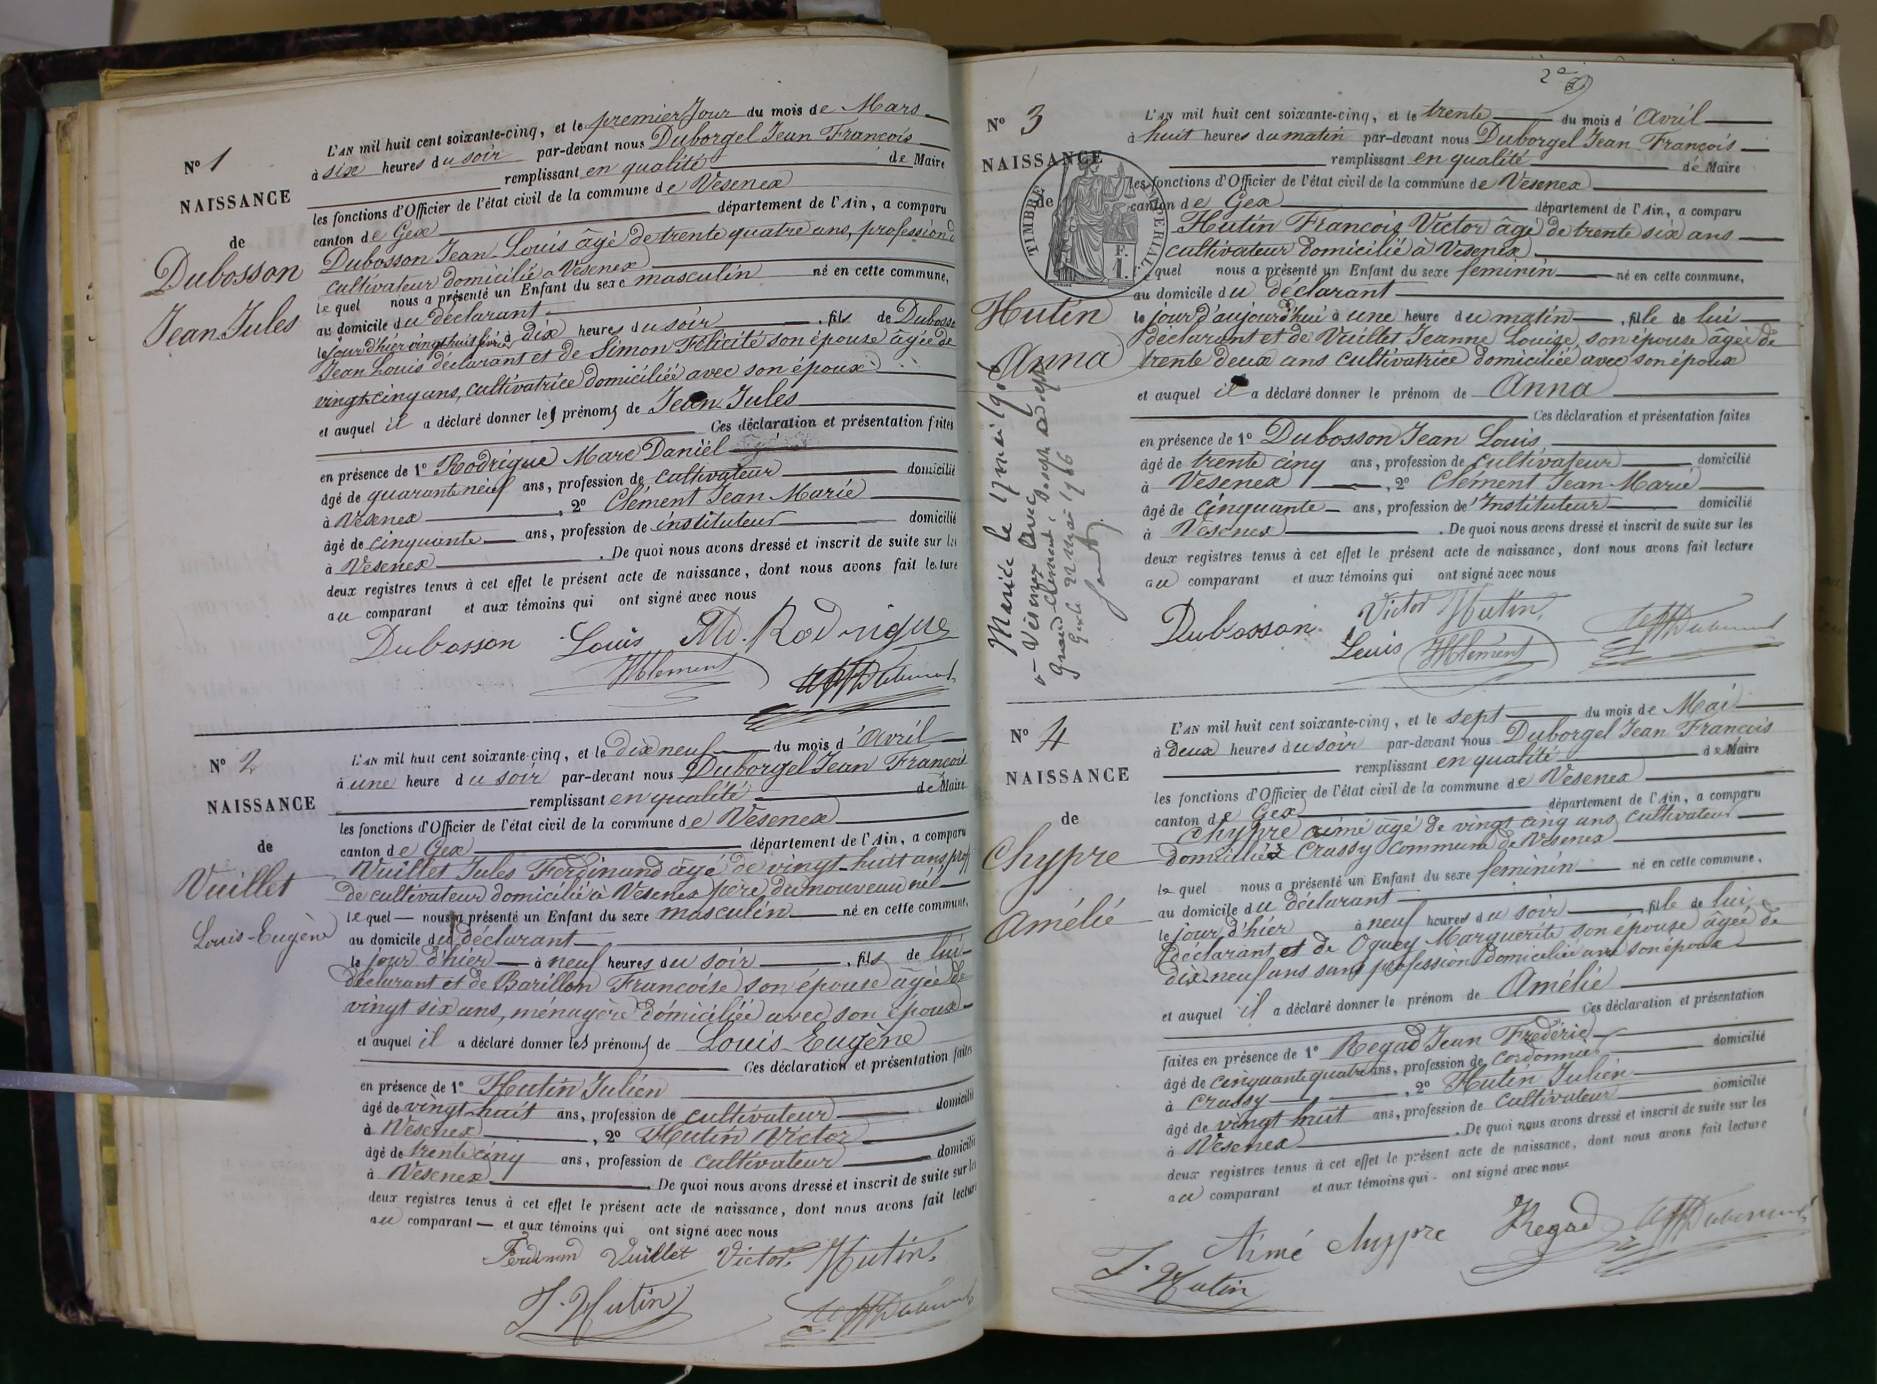 N° 1
NAISSANCE
de
Dubosson
Jean Jules
L'AN mil huit cent soixante-cinq, et le premier Jour du mois de Mars
à six heures du soir par-devant nous Duborgel Jean François
remplissant en qualité de Maire
les fonctions d'Officier de l'état civil de la commune de Vesenex
canton de Gex département de l'Ain, a comparu
Dubosson Jean-Louis âgé de trente quatre ans, profession de
cultivateur domicilié à Vesenex
le quel nous a présenté un Enfant du sexe masculin né en cette commune,
au domicile du déclarant
le jour d'hier vingt huit à dix heures du soir, fils de Dubosson
Jean Louis déclarant et de Simon Félicité son épouse âgée de
vingt-cinq ans, cultivatrice domiciliée avec son époux
et auquel il a déclaré donner les prénoms de Jean Jules
Ces déclaration et présentation faites
en présence de 1° Rodrigue Marc Daniel
âgé de quarante neuf ans, profession de cultivateur domicilié
à Vesenex, 2° Clément Jean-Marie
âgé de cinquante ans, profession de instituteur domicilié
à Vesenex. De quoi nous avons dressé et inscrit de suite sur les
deux registres tenus à cet effet le présent acte de naissance, dont nous avons fait lecture
au comparant et aux témoins qui ont signé avec nous
Dubosson Louis MD. Rodrigue
JMClement
N° 2
NAISSANCE
de
Vuillet
Louis-Eugène
L'AN mil huit cent soixante-cinq, et le dix neuf du mois d'Avril
à une heure du soir par-devant nous Duborgel Jean François
remplissant en qualité de Maire
les fonctions d'Officier de l'état civil de la commune de Vesenex
canton de Gex département de l'Ain, a comparu
Vuillet Jules Ferdinand âgé de vingt-huit ans, prof
de cultivateur domicilié à Vesenex père du nouveau né
le quel nous a présenté un Enfant du sexe masculin né en cette commune,
au domicile du déclarant
le jour d'hier à neuf heures du soir, fils de lui
déclarant et de Barillon Françoise son épouse âgée de
vingt six ans, ménagère domiciliée avec son époux
et auquel il a déclaré donner les prénoms de Louis-Eugène
Ces déclaration et présentation faites
en présence de 1° Hutin Julien
âgé de vingt-huit ans, profession de cultivateur domicilié
à Vesenex, 2° Hutin Victor
âgé de trente cinq ans, profession de cultivateur domicilié
à Vesenex. De quoi nous avons dressé et inscrit de suite sur les
deux registres tenus à cet effet le présent acte de naissance, dont nous avons fait lecture
au comparant et aux témoins qui ont signé avec nous
Ferdinand Vuillet Victor Hutin
J. Hutin
2e
N° 3
NAISSANCE
de
TIMBRE IMPERIAL
F.
1.
Hutin
Anna
Mariée le 17 mai 1906
à Vésenex avec
Grand-Clément, Joseph Adolphe
Gex le 22 Mai 1906
L'AN mil huit cent soixante-cinq, et le trente du mois d'Avril
à huit heures du matin par-devant nous Duborgel Jean-François
remplissant en qualité de Maire
les fonctions d'Officier de l'état civil de la commune de Vesenex
canton de Gex département de l'Ain, a comparu
Hutin François Victor âgé de trente six ans
cultivateur domicilié à Vesenex
le quel nous a présenté un Enfant du sexe feminin né en cette commune,
au domicile du déclarant
le jour d'aujourd'hui à une heure du matin, fille de lui
déclarant et de Vuillet Jeanne Louise, son épouse âgée de
trente deux ans cultivatrice domiciliée avec son époux
et auquel il a déclaré donner le prénom de Anna
Ces déclaration et présentation faites
en présence de 1° Dubosson Jean Louis
âgé de trente cinq ans, profession de cultivateur domicilié
à Vesenex, 2° Clément Jean-Marie
âgé de cinquante ans, profession de Instituteur domicilié
à Vesenex. De quoi nous avons dressé et inscrit de suite sur les
deux registres tenus à cet effet le présent acte de naissance, dont nous avons fait lecture
au comparant et aux témoins qui ont signé avec nous
Victor Hutin
Dubosson Louis JMClement
N° 4
NAISSANCE
de
Chypre
Amélie
L'AN mil huit cent soixante-cinq, et le sept du mois de Mai
à deux heures du soir par-devant nous Duborgel Jean François
remplissant en qualité de Maire
les fonctions d'Officier de l'état civil de la commune de Vesenex
canton de Gex département de l'Ain, a comparu
Chypre aimé âgé de vingt cinq ans cultivateur
domicilié à Crassy commune de Vesenex
le quel nous a présenté un Enfant du sexe feminin né en cette commune,
au domicile du déclarant
le jour d'hier à neuf heures du soir, fille de lui
déclarant et de Oguey Marguerite son épouse âgée de
dix-neuf ans sans profession domiciliée avec son époux
et auquel il a déclaré donner le prénom de Amélie
Ces déclaration et présentation
faites en présence de 1° Regad Jean Frédéric
âgé de cinquante quatre ans, profession de cordonnier domicilié
à Crassy, 2° Hutin Julien
âgé de vingt huit ans, profession de cultivateur domicilié
à Vesenex. De quoi nous avons dressé et inscrit de suite sur les
deux registres tenus à cet effet le présent acte de naissance, dont nous avons fait lecture
au comparant et aux témoins qui ont signé avec nous
Aimé Chypre Regad
J. Hutin